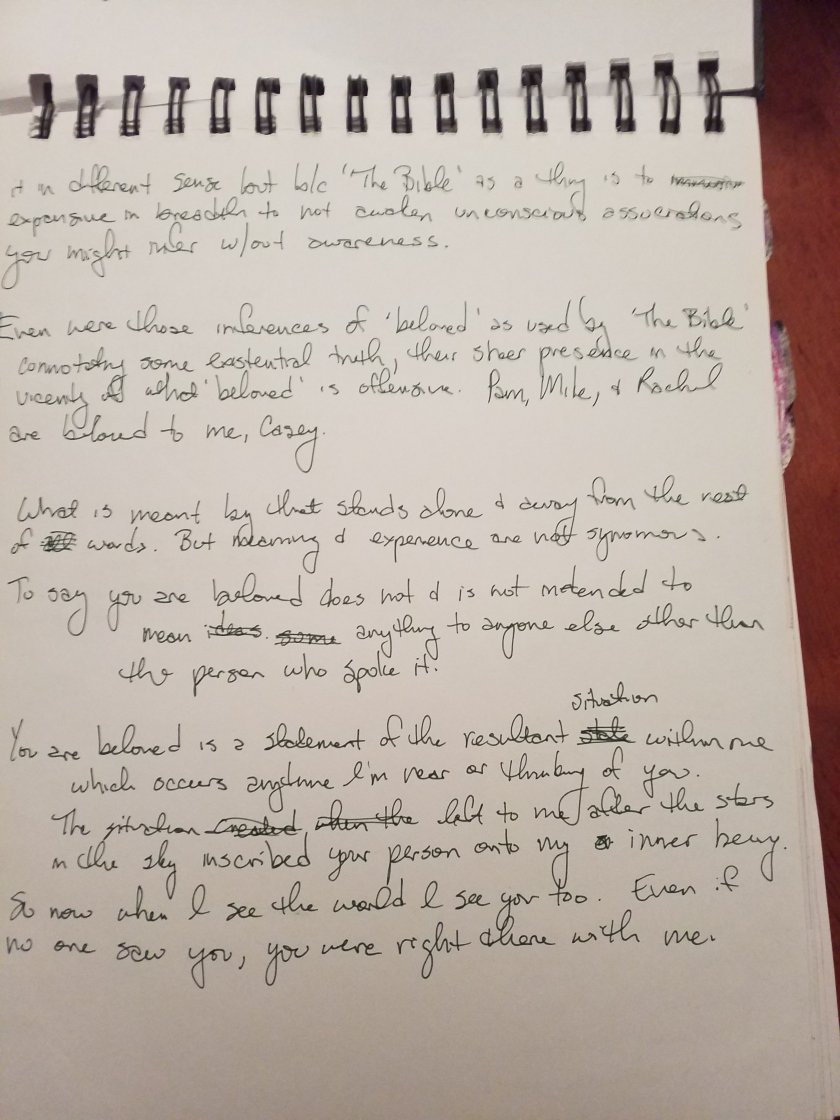 it in different sense but b/c 'The Bible' as a thing is to
expansive in breadth to not awaken unconscious associations
you might infer w/out awareness.
Even were those inferences of 'beloved' as used by 'The Bible'
connotating some existential truth, their sheer presence in the
vicenty of what 'beloved' is offensive. Pam, Mike, & Rachel
are beloved to me, Casey.
What is meant by that stands alone & away from the rest
of words. But meaning & experience are not synomous.
To say you are beloved does not & is not intended to
mean ideas. some anything to anyone else other than
the person who spoke it.
situation
You are beloved is a statement of the resultant state within me
which occurs anytime I'm near or thinking of you.
The situation created, when the left to me after the stars
in the sky inscribed your person onto my inner being.
So now when I see the world I see you too. Even if
no one saw you, you were right there with me.